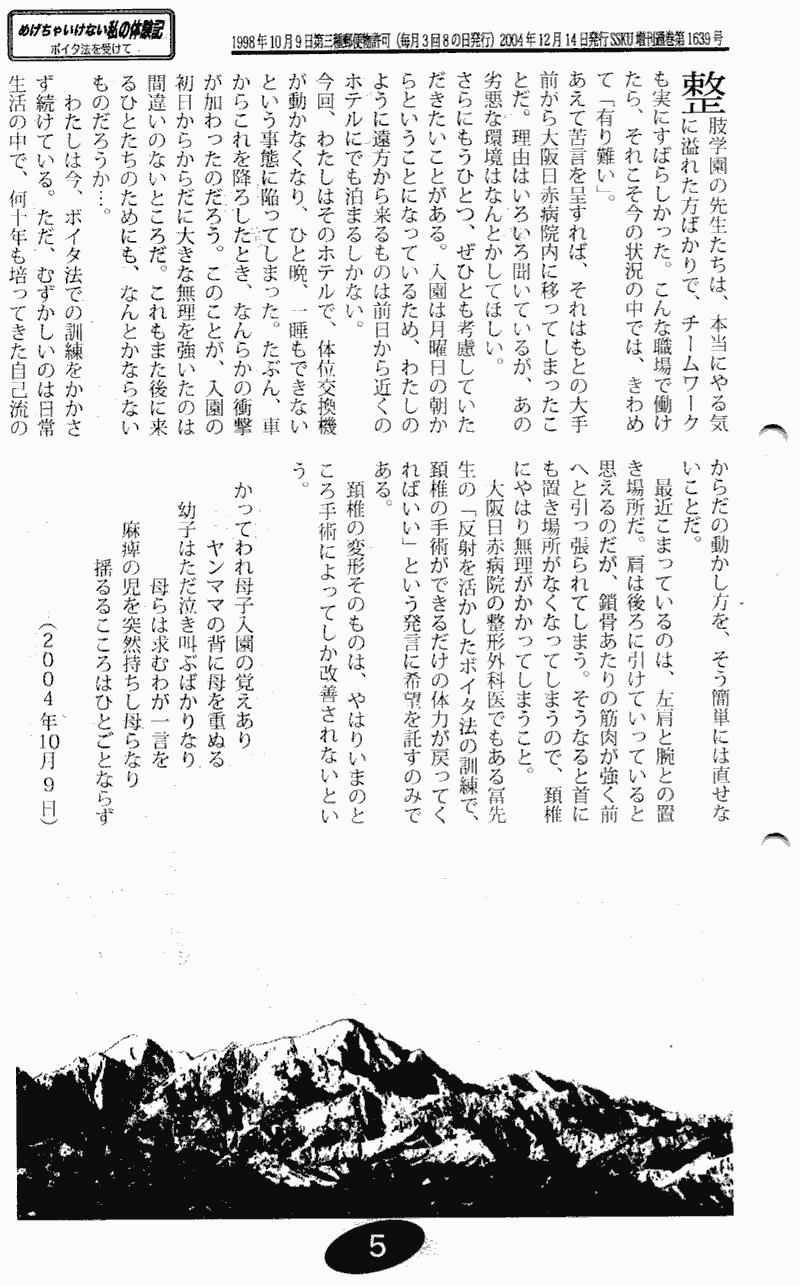 めげちゃいけない私の体験記
ボイタ法を受けて
1998年10月9日第三種郵便物許可（毎月3回8の日発行）2004年12月14日発行SSKU増刊通巻第1639号
整肢学園の先生たちは、本当にやる気
に溢れた方ばかりで、チームワーク
も実にすばらしかった。こんな職場で働け
たら、それこそ今の状況の中では、きわめ
て「有り難い」。
あえて苦言を呈すれば、それはもとの大手
前から大阪日赤病院内に移ってしまったこ
とだ。理由はいろいろ聞いているが、あの
劣悪な環境はなんとかしてほしい。
さらにもうひとつ、ぜひとも考慮していた
だきたいことがある。入園は月曜日の朝か
らということになっているため、わたしの
ように遠方から来るものは前日から近くの
ホテルにでも泊まるしかない。
今回、わたしはそのホテルで、体位交換機
が動かなくなり、ひと晩、一睡もできない
という事態に陥ってしまった。たぶん、車
からこれを降ろしたとき、なんらかの衝撃
が加わったのだろう。このことが、入園の
初日からからだに大きな無理を強いたのは
間違いのないところだ。これもまた後に来
るひとたちのためにも、なんとかならない
ものだろうか…。
わたしは今、ボイタ法での訓練をかかさ
ず続けている。ただ、むずかしいのは日常
生活の中で、何十年も培ってきた自己流の
からだの動かし方を、そう簡単には直せな
いことだ。
最近こまっているのは、左肩と腕との置
き場所だ。肩は後ろに引けていっていると
思えるのだが、鎖骨あたりの筋肉が強く前
へと引っ張られてしまう。そうなると首に
も置き場所がなくなってしまうので、頚椎
にやはり無理がかかってしまうこと。
大阪日赤病院の整形外科医でもある冨先
生の「反射を活かしたボイタ法の訓練で、
頚椎の手術ができるだけの体力が戻ってく
ればいい」という発言に希望を託すのみで
ある。
頚椎の変形そのものは、やはりいまのと
ころ手術によってしか改善されないとい
う。
かってわれ母子入園の覚えあり
ヤンママの背に母を重ぬる
幼子はただ泣き叫ぶばかりなり
母らは求むわが一言を
麻痺の児を突然持ちし母らなり
揺るるこころはひとごとならず
（2004年10月9日）
5